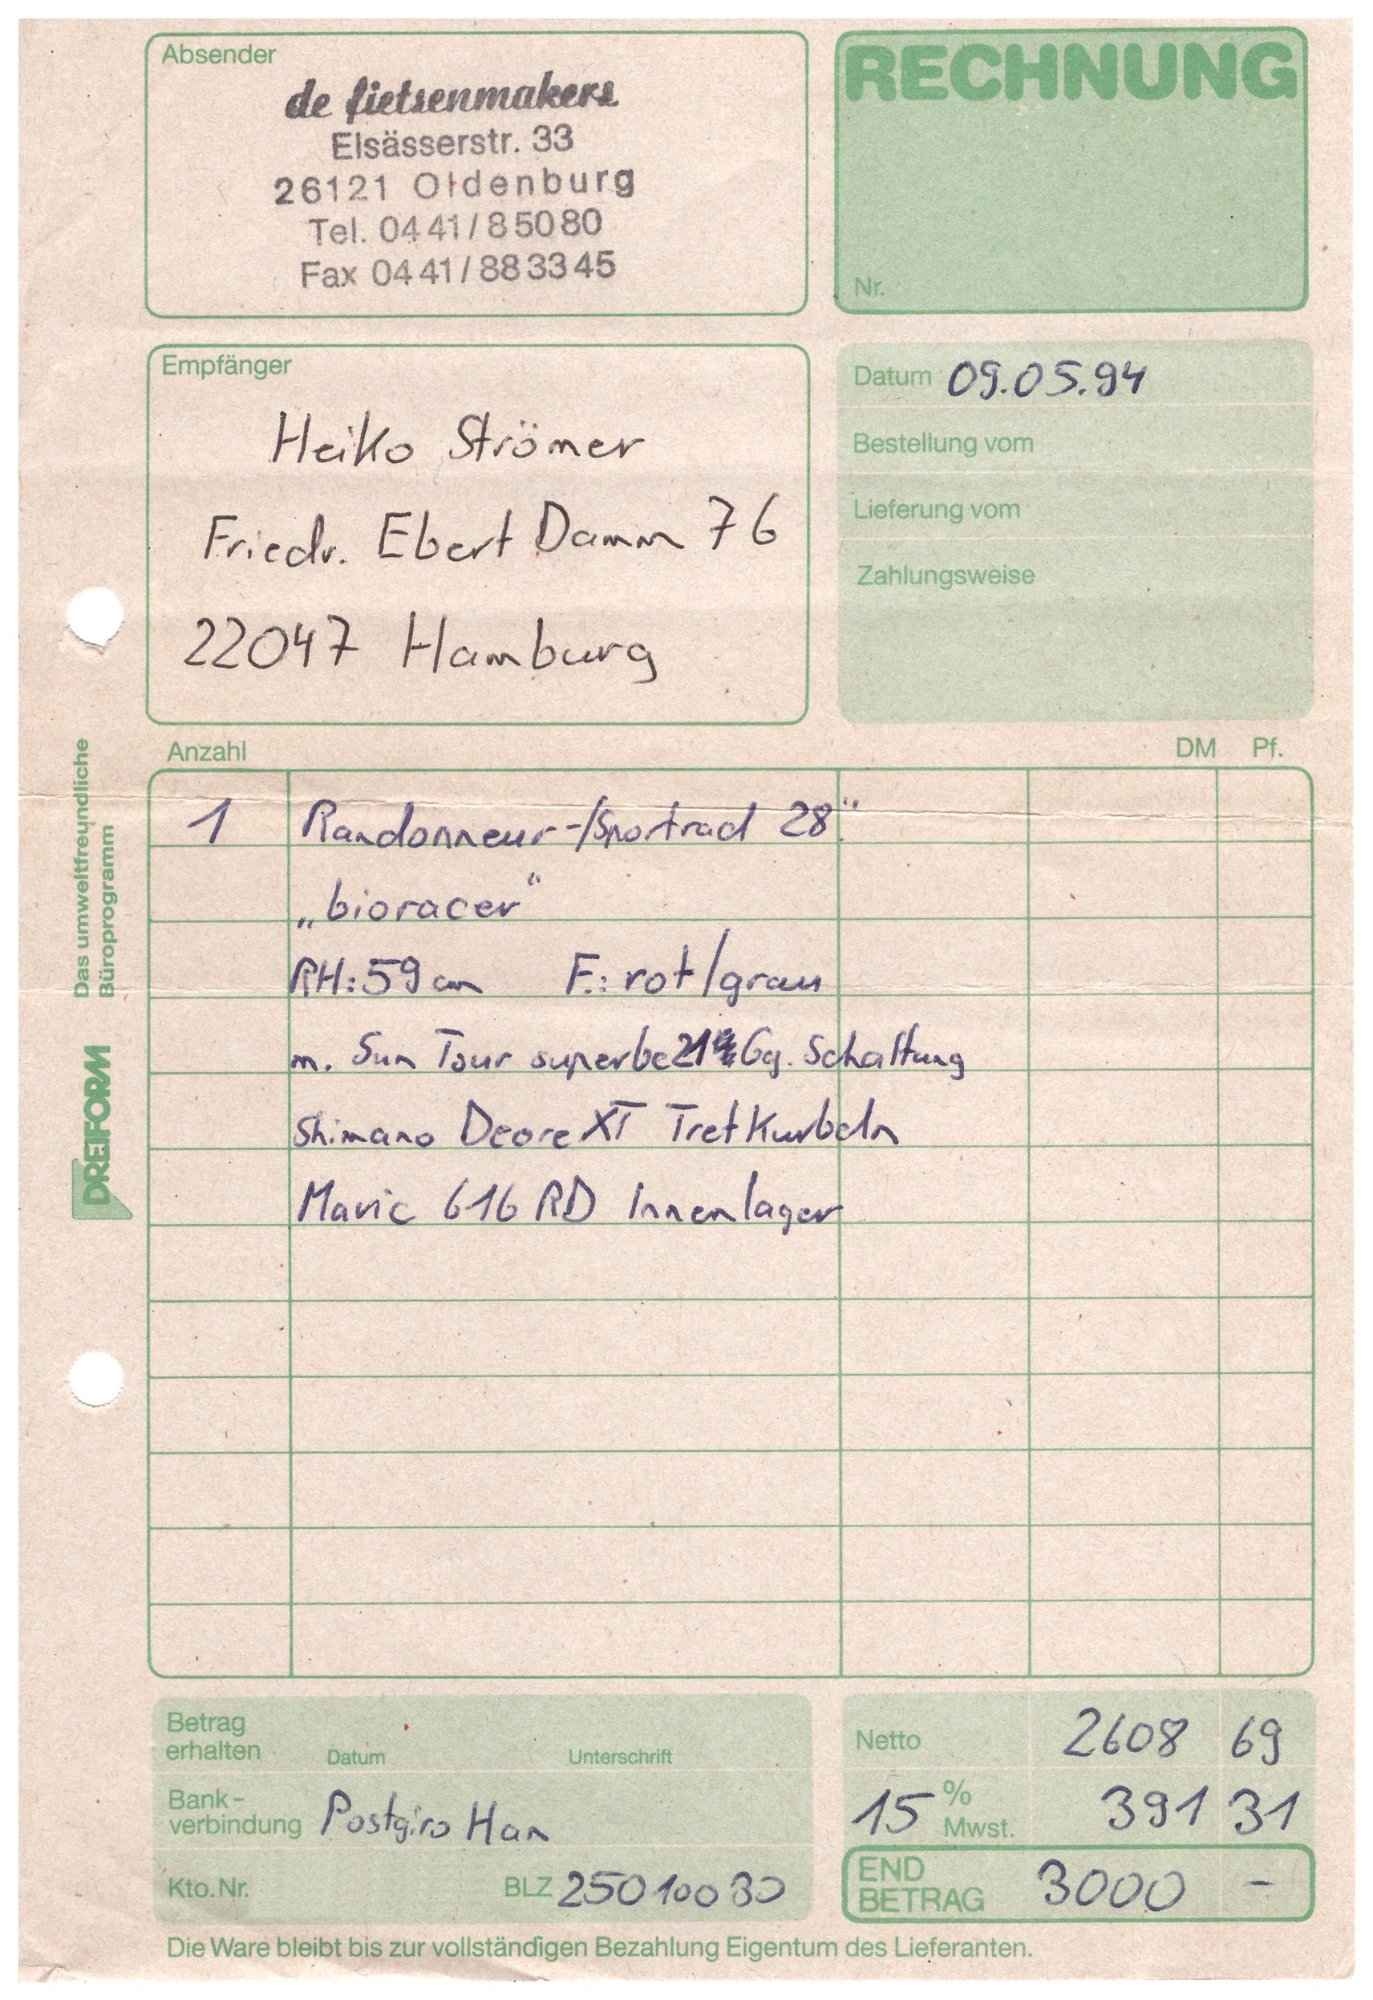 Absender
de fietsenmakers
Elsässerstr. 33
26121 Oldenburg
Tel. 04 41 / 8 50 80
Fax 04 41 / 88 33 45
RECHNUNG
Nr.
Empfänger
Heiko Strömer
Friedr. Ebert Damm 76
22047 Hamburg
Datum 09.05.94
Bestellung vom
Lieferung vom
Zahlungsweise
Anzahl DM Pf.
1 Randonneur-/Sportrad 28"
„bioracer“
RH: 59 cm F.: rot/grau
m. Sun Tour superbe 21 Gg. Schaltung
Shimano Deore XT Tretkurbeln
Mavic 616 RD Innenlager
Das umweltfreundliche
Büroprogramm
DREIFORM
Betrag
erhalten Datum Unterschrift
Bank-
verbindung Postgiro Han
Kto. Nr. BLZ 250 100 30
Netto 2608 69
15 % Mwst. 391 31
END
BETRAG 3000 -
Die Ware bleibt bis zur vollständigen Bezahlung Eigentum des Lieferanten.